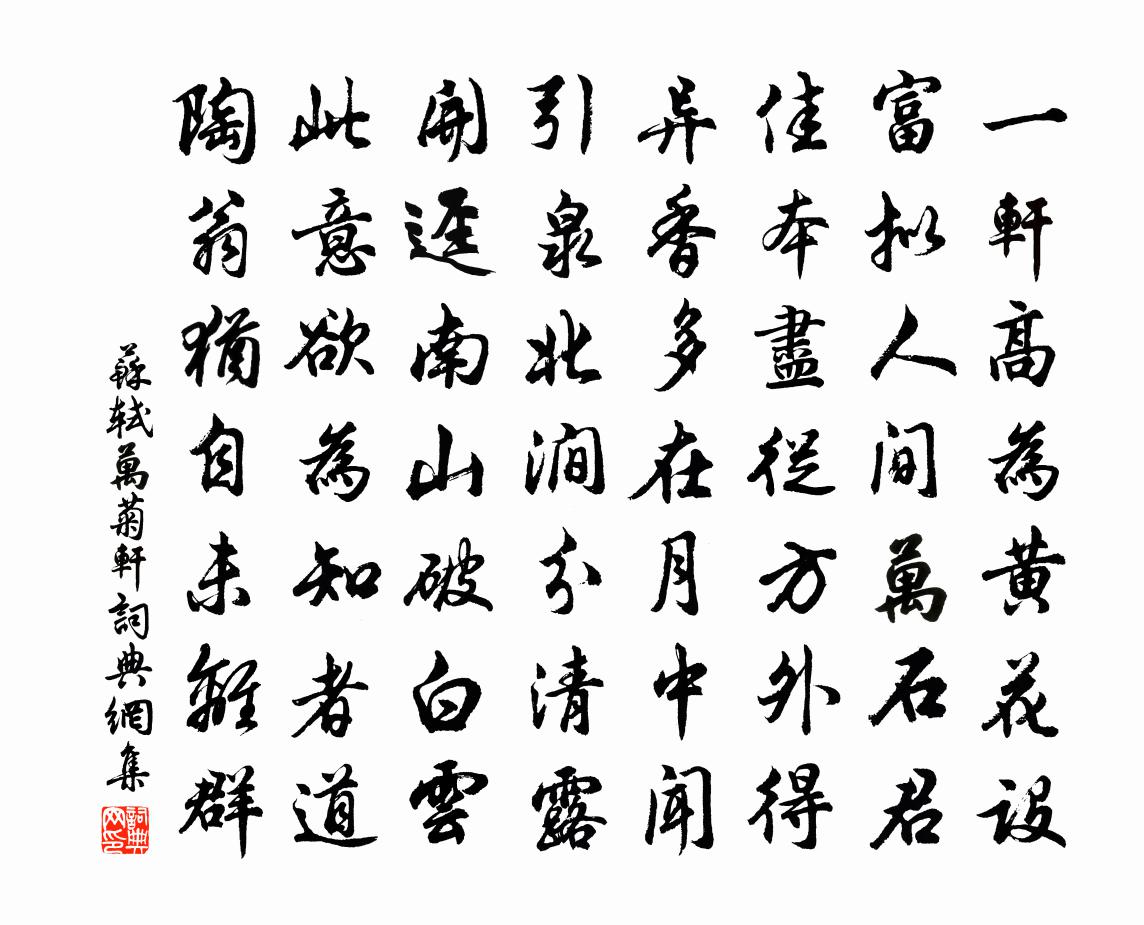 一軒高為黄花設
富拟人間萬石君
佳本盡從方外得
异香多在月中聞
引泉北澗分清露
開逕南山破白雲
此意欲為知者道
陶翁猶自未離群
蘇軾萬菊軒詞典網集
詞典网印